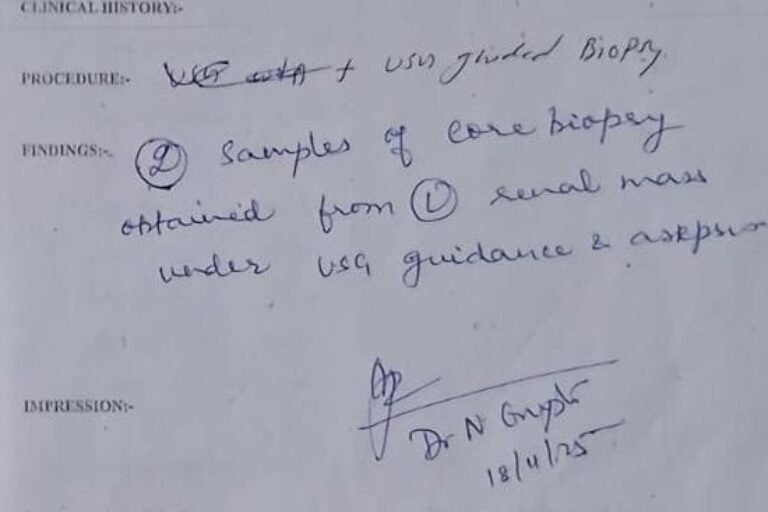 CLINICAL HISTORY:-
PROCEDURE:- + USG guided Biopsy
FINDINGS:- (2) samples of core biopsy
obtained from (L) renal mass
under USG guidance & asepsis
IMPRESSION:-
Dr N Gupta
18/11/25